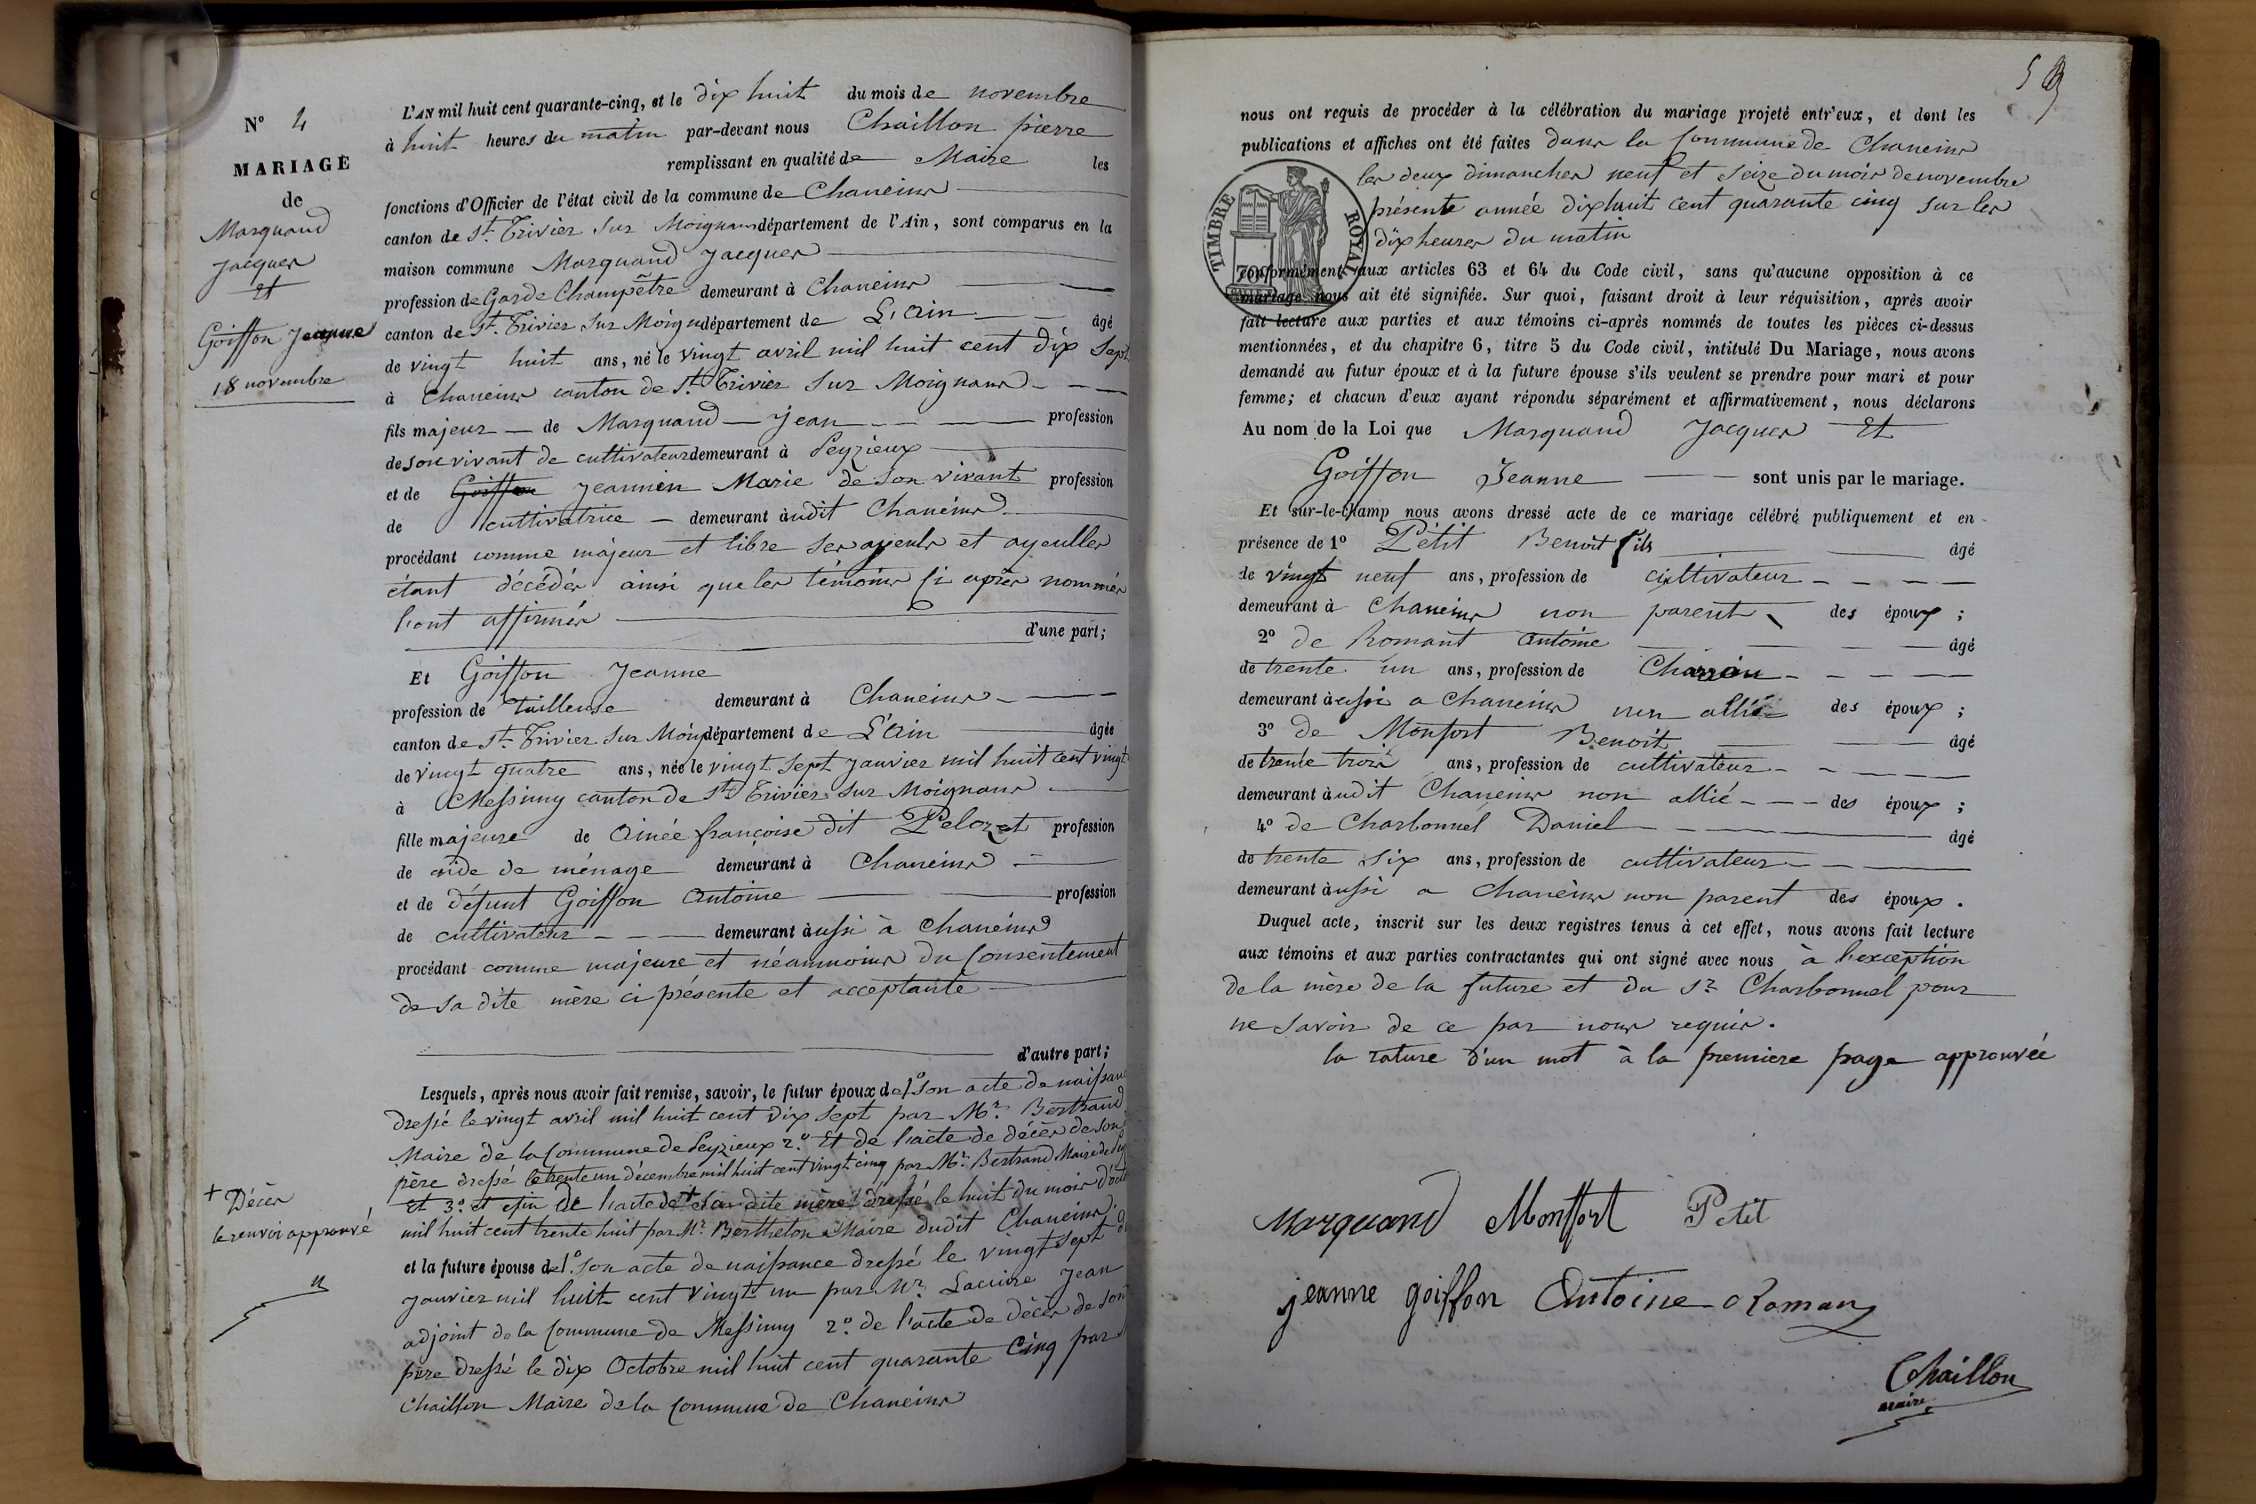 N° 4
MARIAGE
de
Marquand
Jacques
Et
Goiffon Jeanne
18 novembre
L'AN mil huit cent quarante-cinq, et le dix huit du mois de novembre
à huit heures du matin par-devant nous Chaillon pierre
remplissant en qualité de Maire les
fonctions d'Officier de l'état civil de la commune de Chaneins
canton de St. Trivier Sur Moignans département de l'Ain, sont comparus en la
maison commune Marquand Jacques
profession de Garde Champêtre demeurant à Chaneins
canton de St. Trivier Sur Moign département de L'Ain âgé
de vingt huit ans, né le vingt avril mil huit cent dix Sept
à Chaneins canton de St Trivier Sur Moignans
fils majeur de Marquand Jean profession
de son vivant de cultivateur demeurant à Peyzieux
et de Goiffon Jeannin Marie de son vivant profession
de cultivatrice demeurant àudit Chaneins
procédant comme majeur et libre ses ayeuls et ayeulles
étant décédés ainsi que les témoins ci après nommés
l'ont affirmés
d'une part;
Et Goiffon Jeanne
profession de Tailleuse demeurant à Chaneins
canton de St. Trivier Sur Moig département de L'Ain âgée
de vingt quatre ans, née le vingt Sept Janvier mil huit cent vingt
à Messimy canton de St Trivier Sur Moignans
fille majeure de Ainée françoise dit Pelozet profession
de aide de ménage demeurant à Chaneins
et de défunt Goiffon Antoine profession
de cultivateur demeurant àussi à Chaneins
procédant comme majeure et néammoins du Consentement
de sa dite mère ci présente et acceptante
d'autre part;
Lesquels, après nous avoir fait remise, savoir, le futur époux de 1° son acte de naissance
dressé le vingt avril mil huit cent dix Sept par Mr. Bertrand
Maire de la Commune de Peyzieux 2.° Et de l'acte de décès de son
père dressé le trente un décembre mil huit cent vingt cinq par Mr. Bertrand Maire de Pey
Et 3.° et efin De l'acte de + sa dite mère dressé le huit du mois d'out
mil huit cent trente huit par Mr. Berthelon Maire dudit Chaneins.
+ Décès
le renvoi approuvé
et la future épouse de 1.° son acte de naissance dressé le vingt Sept
Janvier mil huit cent vingt un par Mr. Jean
adjoint de la Commune de Messimy 2.° de l'acte de décès de son
père dressé le dix Octobre mil huit cent quarante Cinq par
Chaillon Maire de la Commune de Chaneins
nous ont requis de procéder à la célébration du mariage projeté entr'eux, et dont les
publications et affiches ont été faites dans la Commune de Chaneins
les deux dimanches neuf et Seize du mois de novembre
présente année dixhuit cent quarante cinq sur les
dix heures du matin
TIMBRE ROYAL
conformément aux articles 63 et 64 du Code civil, sans qu'aucune opposition à ce
mariage nous ait été signifiée. Sur quoi, faisant droit à leur réquisition, après avoir
fait lecture aux parties et aux témoins ci-après nommés de toutes les pièces ci-dessus
mentionnées, et du chapitre 6, titre 5 du Code civil, intitulé Du Mariage, nous avons
demandé au futur époux et à la future épouse s'ils veulent se prendre pour mari et pour
femme; et chacun d'eux ayant répondu séparément et affirmativement, nous déclarons
Au nom de la Loi que Marquand Jacques Et
Goiffon Jeanne sont unis par le mariage.
Et sur-le-champ nous avons dressé acte de ce mariage célébré publiquement et en
présence de 1° Petit Benoit fils âgé
de vingt neuf ans, profession de cultivateur
demeurant à Chaneins non parent des époux;
2° de Romant Antoine âgé
de trente un ans, profession de Charron
demeurant àussi a Chaneins non allié des époux;
3° de Monfort Benoit âgé
de trente trois ans, profession de cultivateur
demeurant àudit Chaneins non allié des époux;
4° de Charbonnel Daniel âgé
de trente six ans, profession de cultivateur
demeurant àussi a Chaneins non parent des époux.
Duquel acte, inscrit sur les deux registres tenus à cet effet, nous avons fait lecture
aux témoins et aux parties contractantes qui ont signé avec nous à l'exception
de la mère de la future et du Sr Charbonnel pour
ne savoir de ce par nous requis.
la rature d'un mot à la premiere page approuvée
Marquand Monffort Petit
jeanne goiffon Antoine Roman
Chaillon
maire